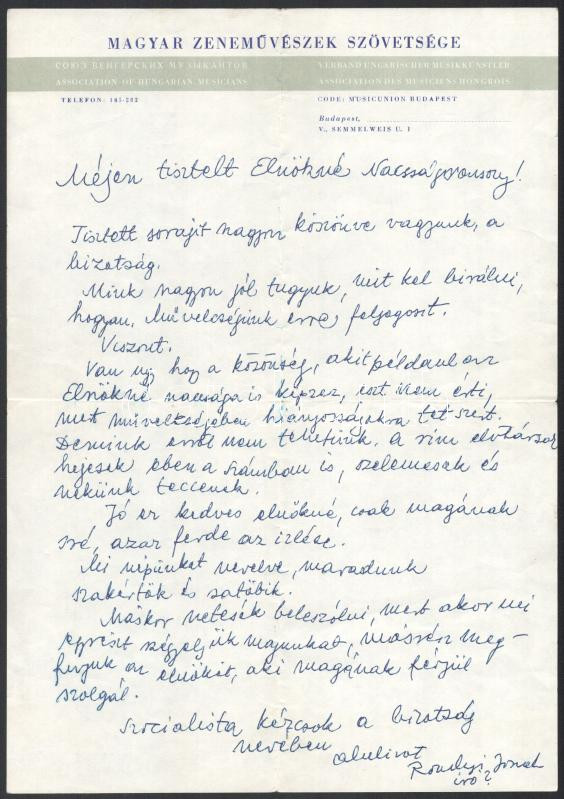 MAGYAR ZENEMŰVÉSZEK SZÖVETSÉGE
СОЮЗ ВЕНГЕРСКИХ МУЗЫКАНТОВ
VERBAND UNGARISCHER MUSIKKÜNSTLER
ASSOCIATION OF HUNGARIAN MUSICIANS
ASSOCIATION DES MUSICIENS HONGROIS
TELEFON: 185-202
CODE: MUSICUNION BUDAPEST
Budapest,
V., SEMMELWEIS U. 1
Méjen tisztelt Elnökné
Tisztelt sorajit nagyon köszönve vagyunk, a
bizotság.
Mink nagyon jól tugyuk, mit kel birálni,
hogyan. Műveltségünk erre feljogosit.
Viszont.
Van úgy hogy a közönség, akit például az
Elnökné nacsága is képzez, eszt nem érti,
mert műveltségében hiányosságokra tet szert.
Demink erről nem tehetünk. A rim
hejesek eben a számban is, szelemesek és
nekünk teccenek.
Jó ez kedves elnökné, csak magának
azar ferde az izlése.
Mi népünket nevelve, maradunk
szakértők és satöbik.
Máskor netesék beleszólni, mert akor mi
egyrészt szégyeljük magunkat, másrész meg-
az elnökét, aki magának férjül
szolgál.
Szocialista kézcsok a bizotság
nevében
alulirot
író?